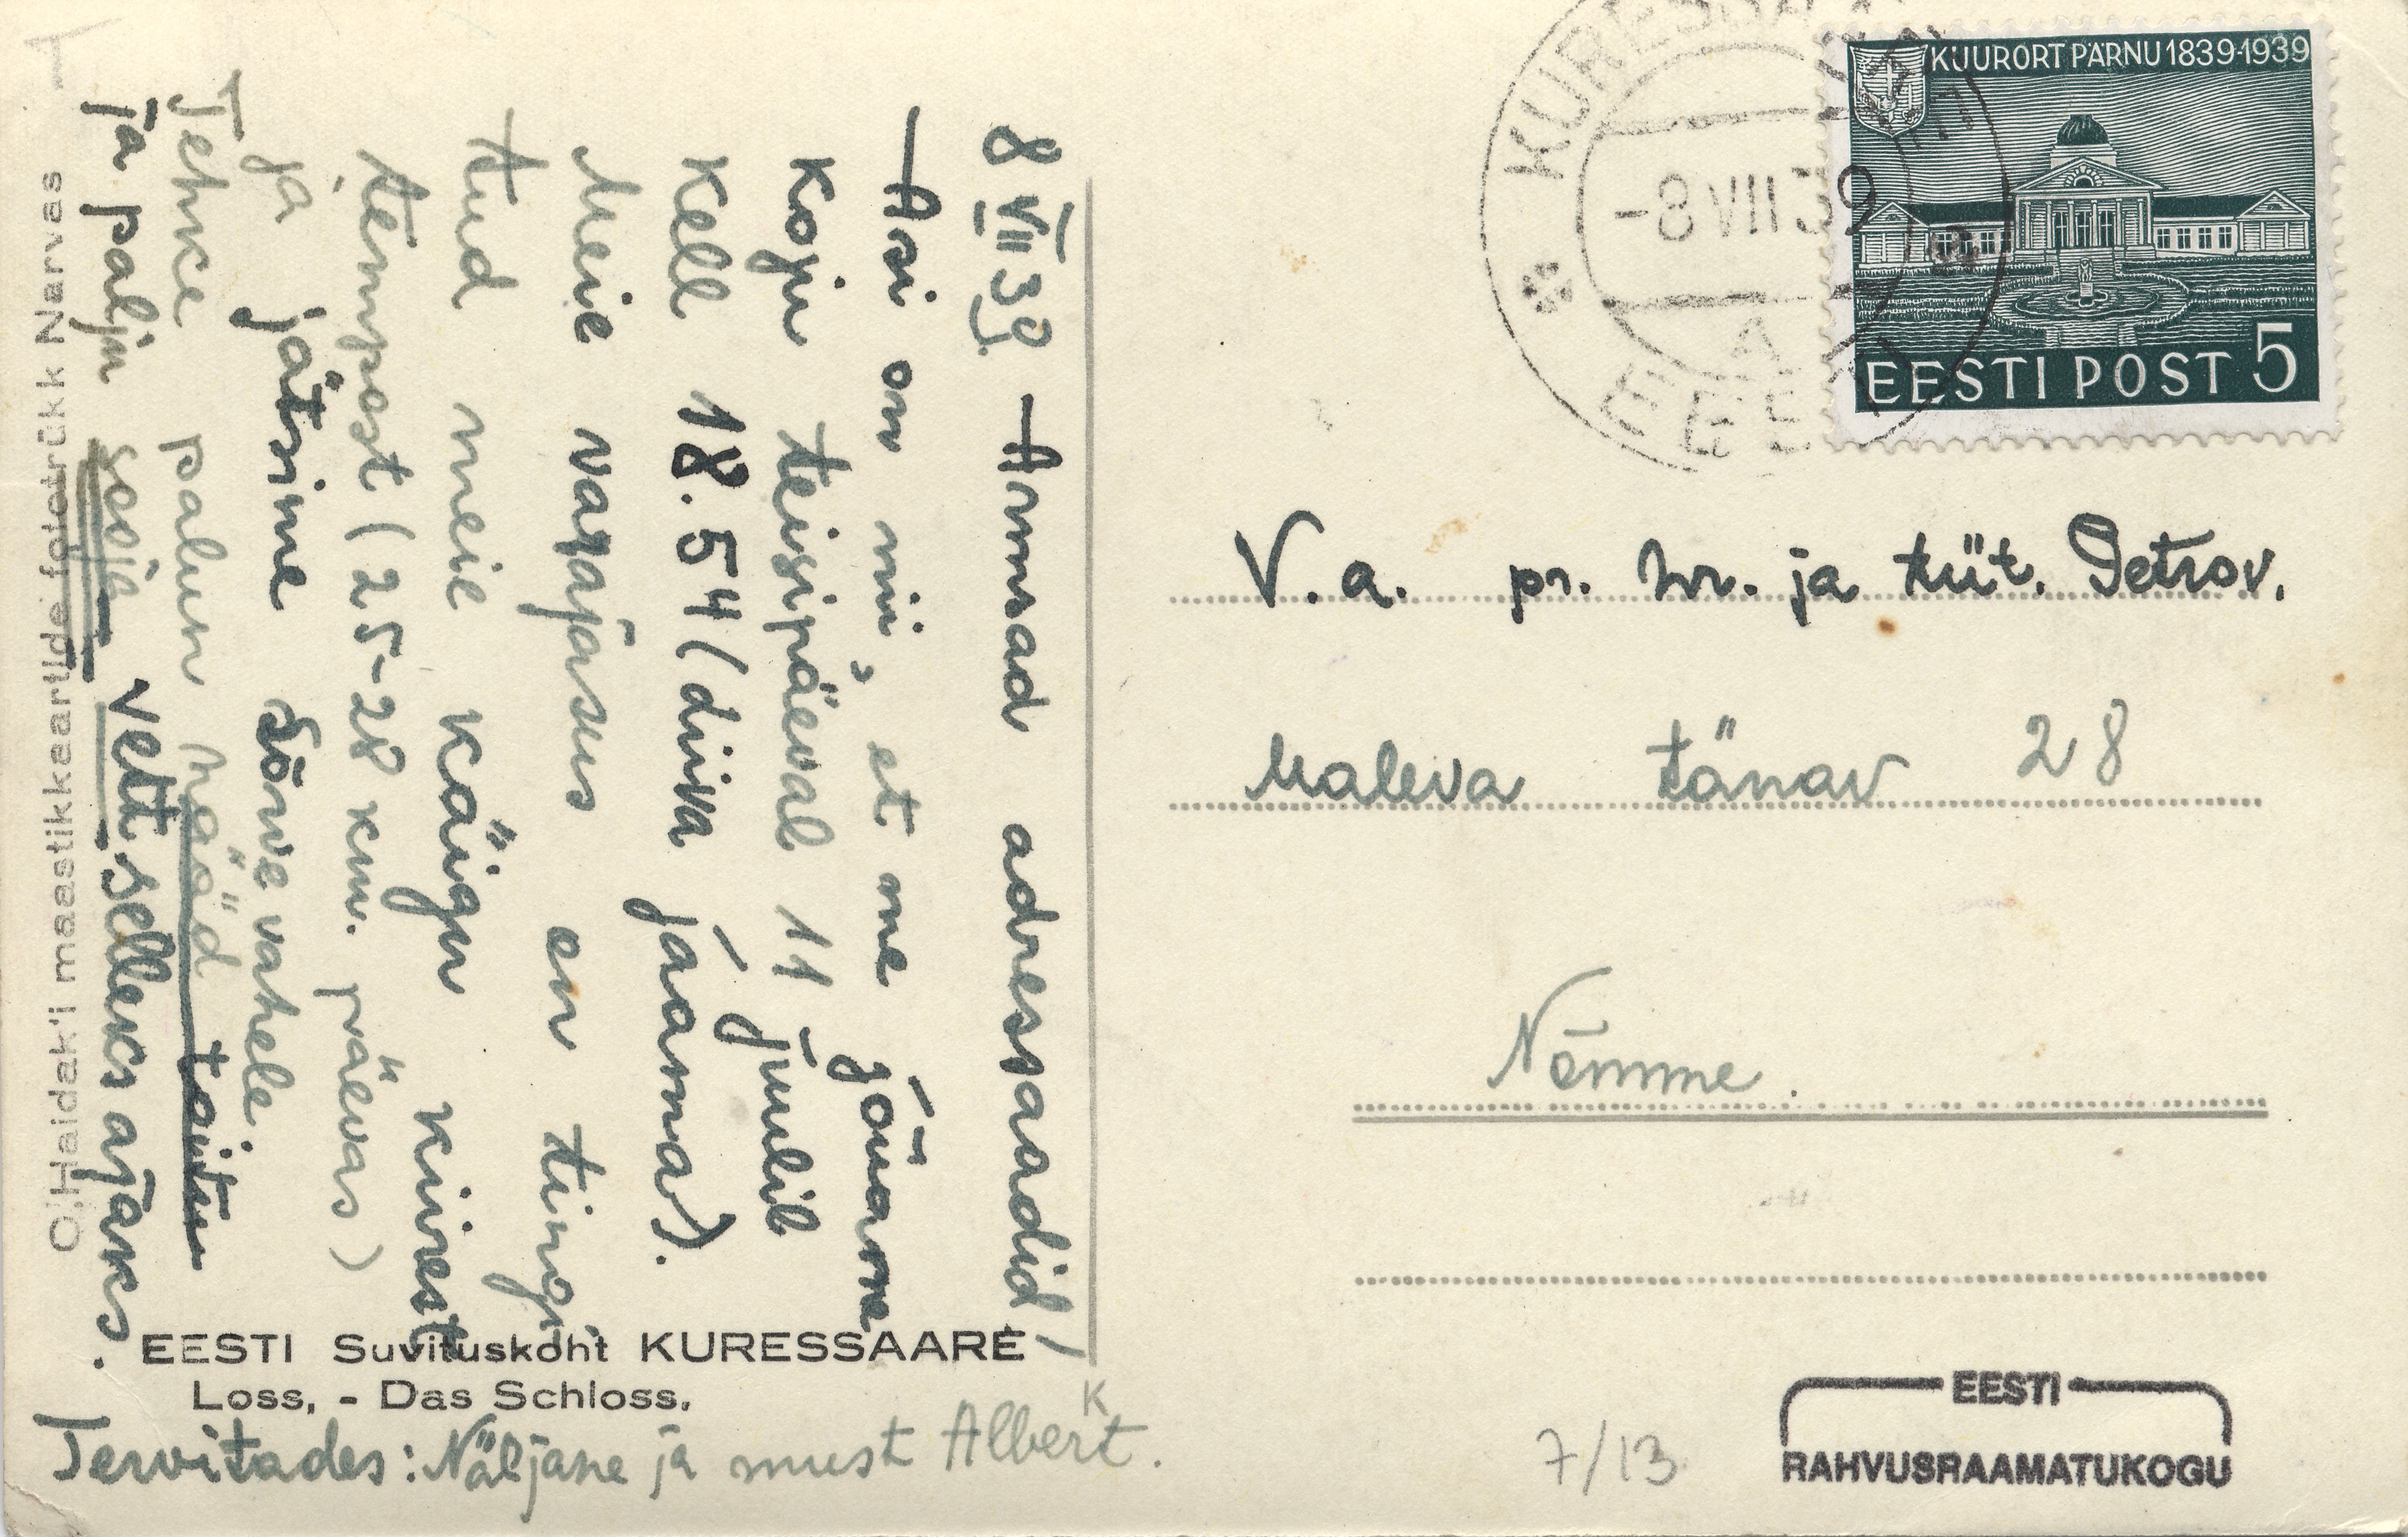 8 VII 39. Armsad adressaadid!
Asi on nii, et me jõuame
koju teisipäeval 11 juulil
kell 18.54 (Liiva jaama).
Meie vagajasus on tingi-
tud meie käigu kiirest
tempost (25-28 km. päevas)
ja jätsime Sõrve vahele.
Tehke palun hääd toitu
ja palju sooja vett selleks ajaks.
O. Haidak'i maastikkaartide fototrükk Narvas
EESTI Suvituskoht KURESSAARE
Loss, - Das Schloss.
Tervitades: Näljane ja must Albert.
K
KURESSAARE
-8 VII 39
EESTI
KUURORT PÄRNU 1839-1939
EESTI POST 5
V. a. pr. hr. ja tüt. Petrov.
Maleva tänav 28
Nõmme.
7/13
EESTI
RAHVUSRAAMATUKOGU